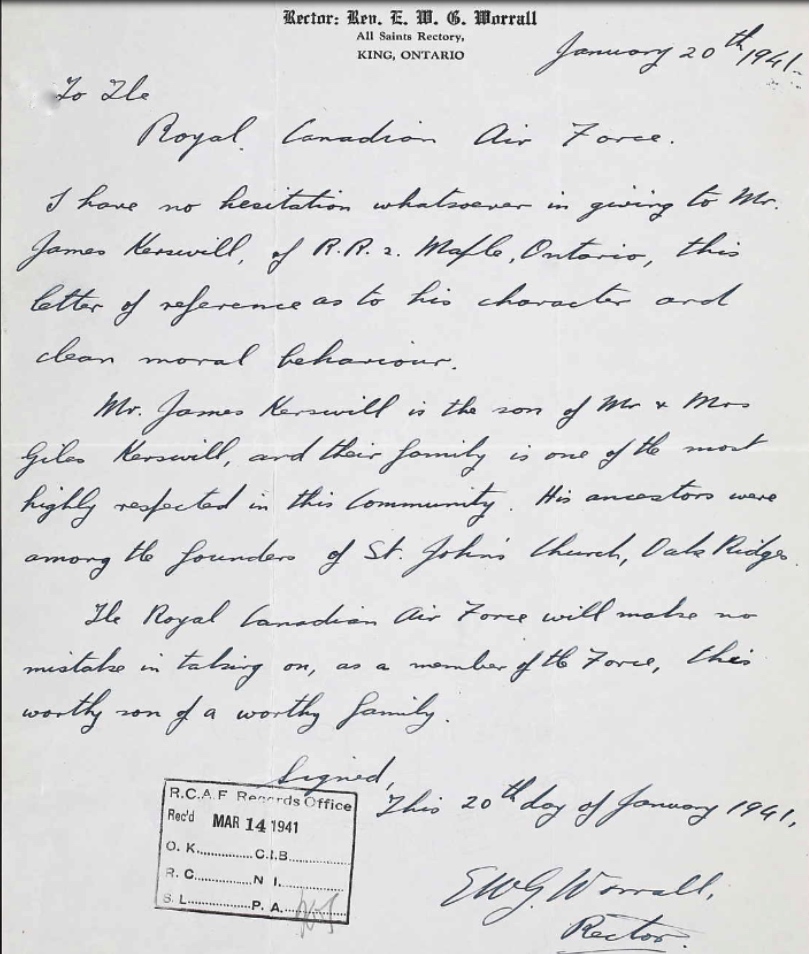 Rector: Rev. E. W. G. Worrall
All Saints Rectory,
KING, ONTARIO
January 20th 1941.
To The
Royal Canadian Air Force.
I have no hesitation whatsoever in giving to Mr.
James Kerswill, of R.R. 2. Maple, Ontario, this
letter of reference as to his character and
clean moral behaviour.
Mr. James Kerswill is the son of Mr & Mrs
Giles Kerswill, and their family is one of the most
highly respected in this Community. His ancestors were
among the founders of St. John's Church, Oak Ridges.
The Royal Canadian Air Force will make no
mistake in taking on, as a member of the Force, this
worthy son of a worthy family.
Signed,
This 20th day of January 1941,
R.C.A.F. Records Office
Rec'd MAR 14 1941
O. K. C.I.B.
R. C. N I.
S. L. P. A.
EWG. Worrall,
Rector.